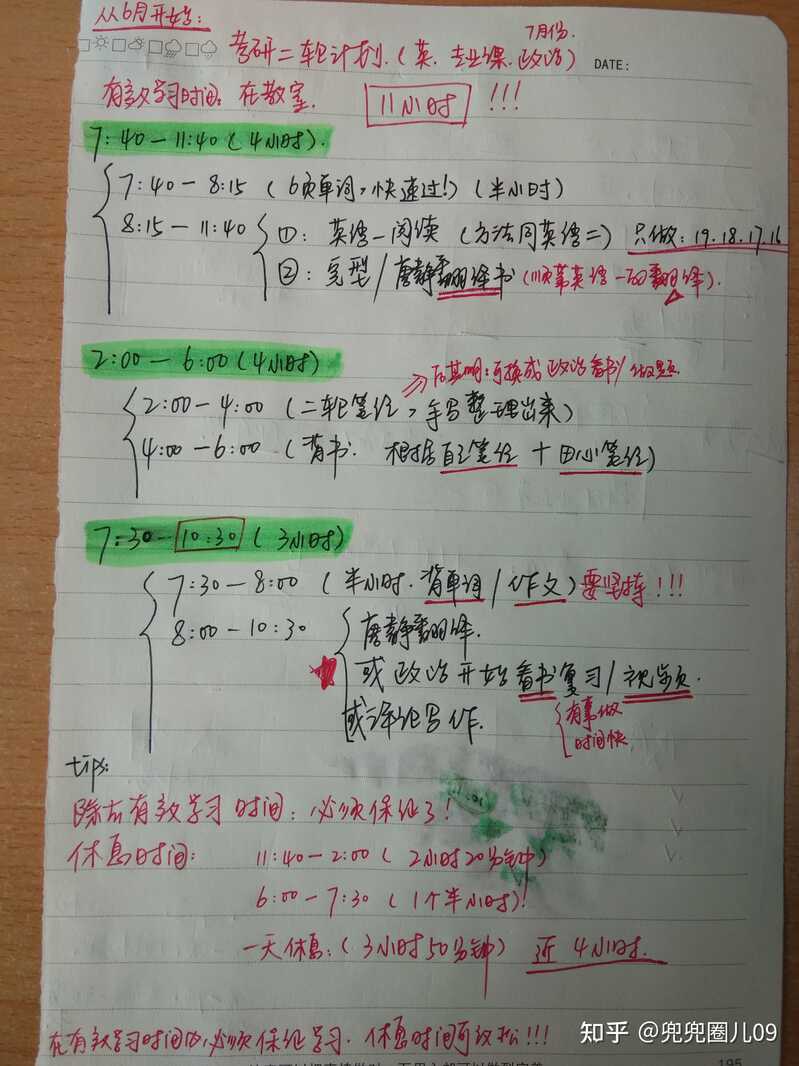 从6月开始:
考研二轮计划.(英.专业课.政治)
7月份.
DATE:
有效学习时间:在教室.
11小时 !!!
7:40—11:40(4小时).
7:40—8:15(6页单词,快速过!)(半小时)
8:15—11:40
①: 英语一阅读(方法同英语二) 只做:19.18.17.16
②: 完型/唐静翻译书(顺第英语一的翻译).
2:00—6:00(4小时)
⇒后期:可换成政治看书/做题
2:00—4:00(二轮笔红,手写整理出来)
4:00—6:00(背书. 根据自己笔红+田小笔红)
7:30—10:30(3小时)
7:30—8:00(半小时.背单词/作文)要坚持!!!
8:00—10:30
唐静翻译.
或政治开始看书复习/视频.
或 写作.
有事做
时间快
tips:
除去有效学习时间:必须保证了!
休息时间: 11:40—2:00(2小时20分钟)
6:00—7:30(1个半小时)!
一天休息:(3小时50分钟) 近4小时.
在有效学习时间内,必须保证学习.休息时间可放松!!!
知乎 @兜兜圈儿09
195